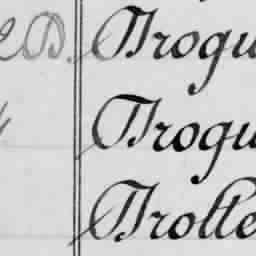 D. Trogu
Trogu
Trotte